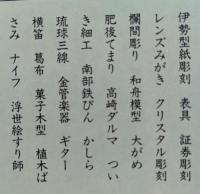 伊勢型紙彫刻 表具 証券彫刻
レンズみがき クリスタル彫刻
欄間彫り 和舟模型 大がめ
肥後てまり 高崎ダルマ つい
き細工 南部鉄びん かしら
琉球三線 金管楽器 ギター
横笛 葛布 菓子木型 植木ば
さみ ナイフ 浮世絵すり師